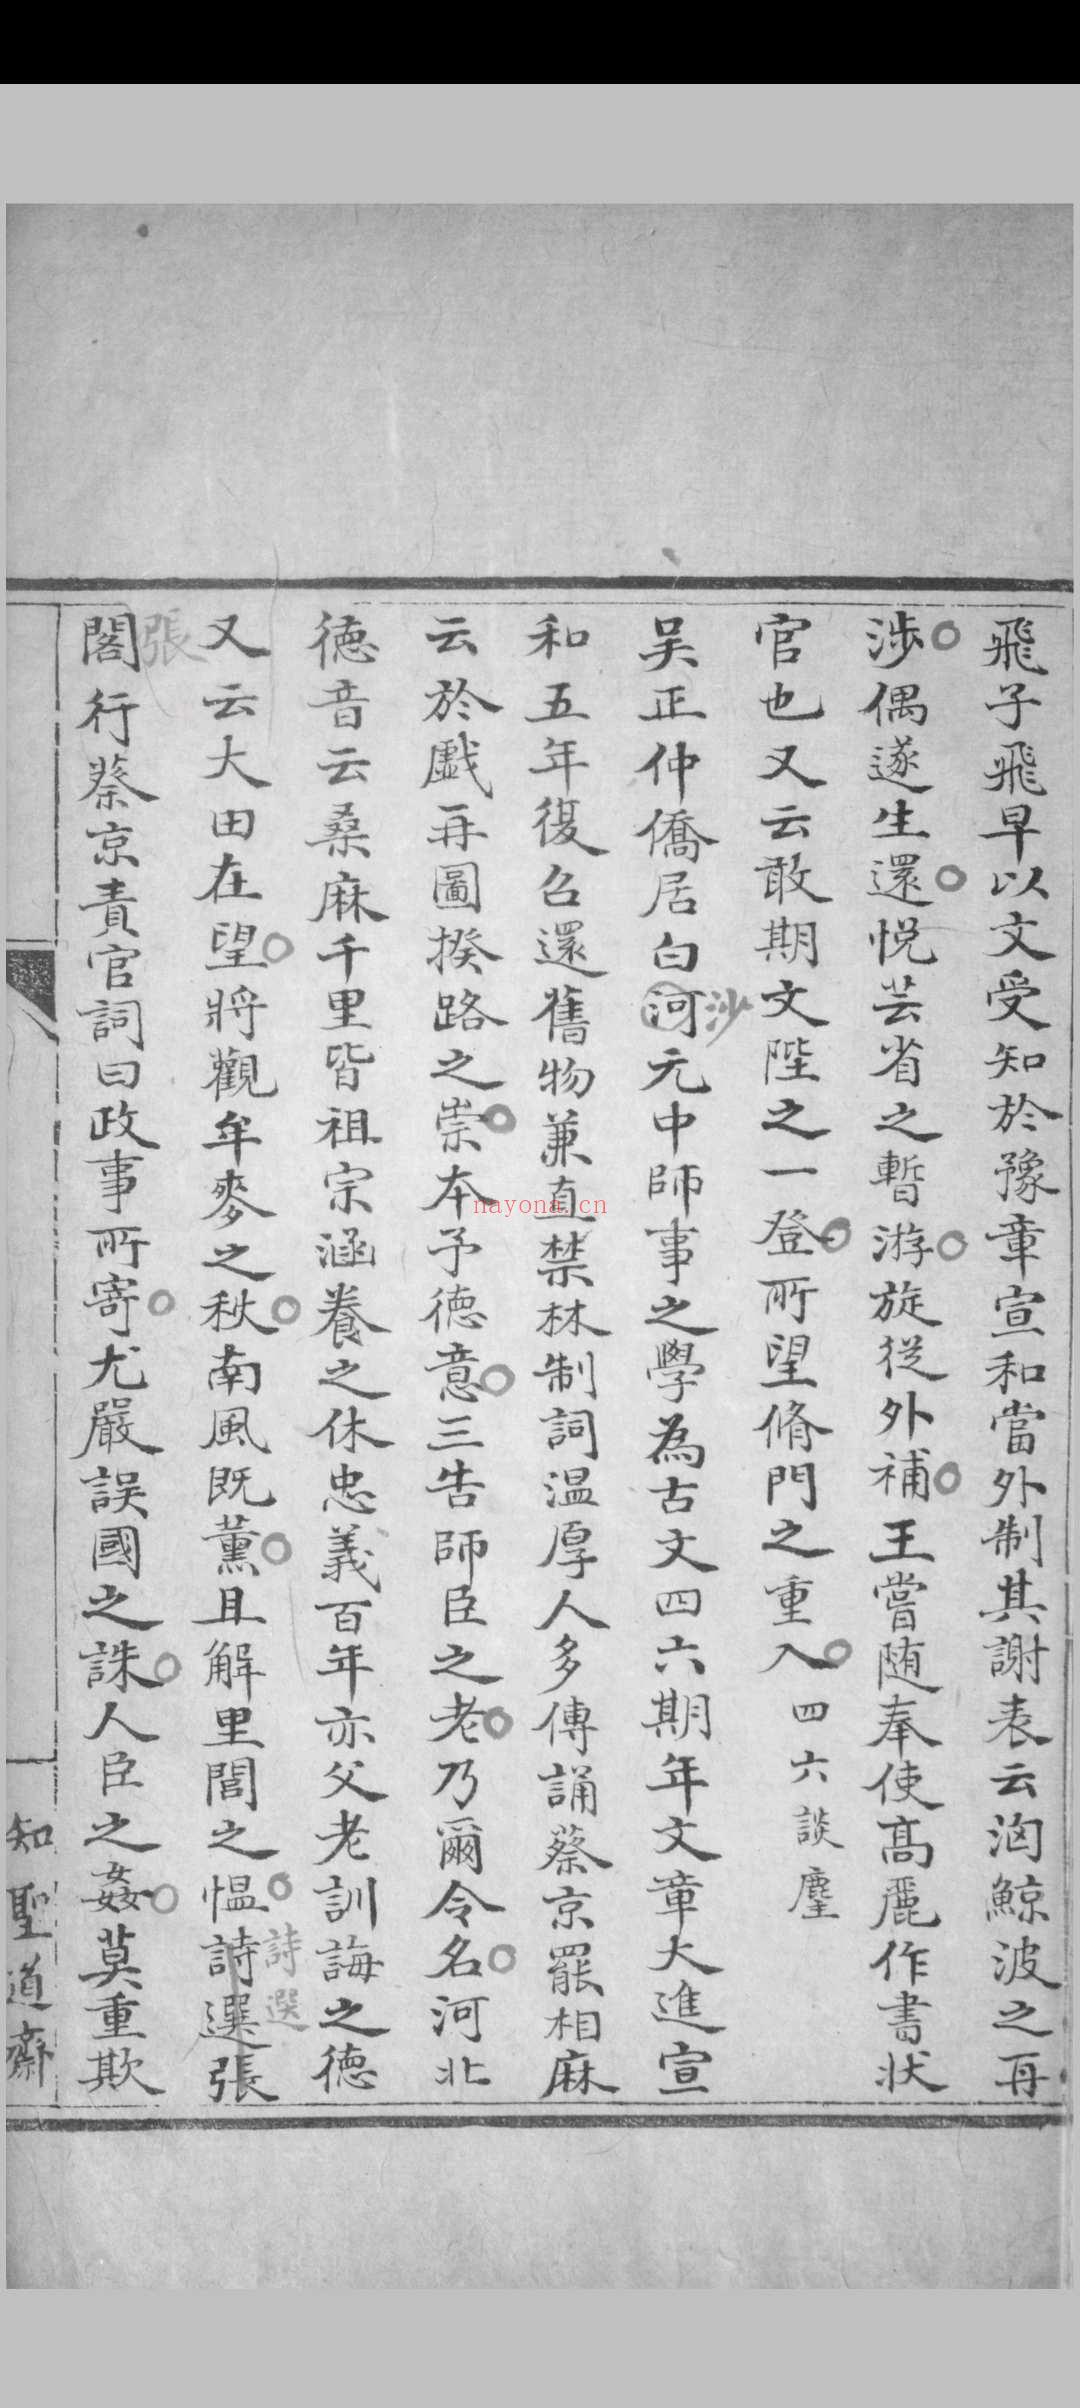 飛子飛早以文受知於豫章宣和當外制其謝表云洶鯨波之再
涉偶遂生還悦芸省之暫游旋從外補王嘗随奉使髙麗作書状
官也又云敢期文陛之一登所望脩門之重入四六談麈
吴正仲僑居白河元中師事之學為古文四六期年文章大進宣
沙
和五年復召還舊物兼直禁林制詞温厚人多傳誦蔡京罷相麻
云於戲再圖揆路之崇本予德意三告師臣之老乃爾令名河北
德音云桑麻千里皆祖宗涵養之休忠義百年亦父老訓誨之德
又云大田在望將觀牟麥之秋南風既薫且解里閭之愠詩選張
詩選
張
閣行蔡京責官詞曰政事所寄尤嚴誤國之誅人臣之姦莫重欺
知聖道齋
nayona.cn